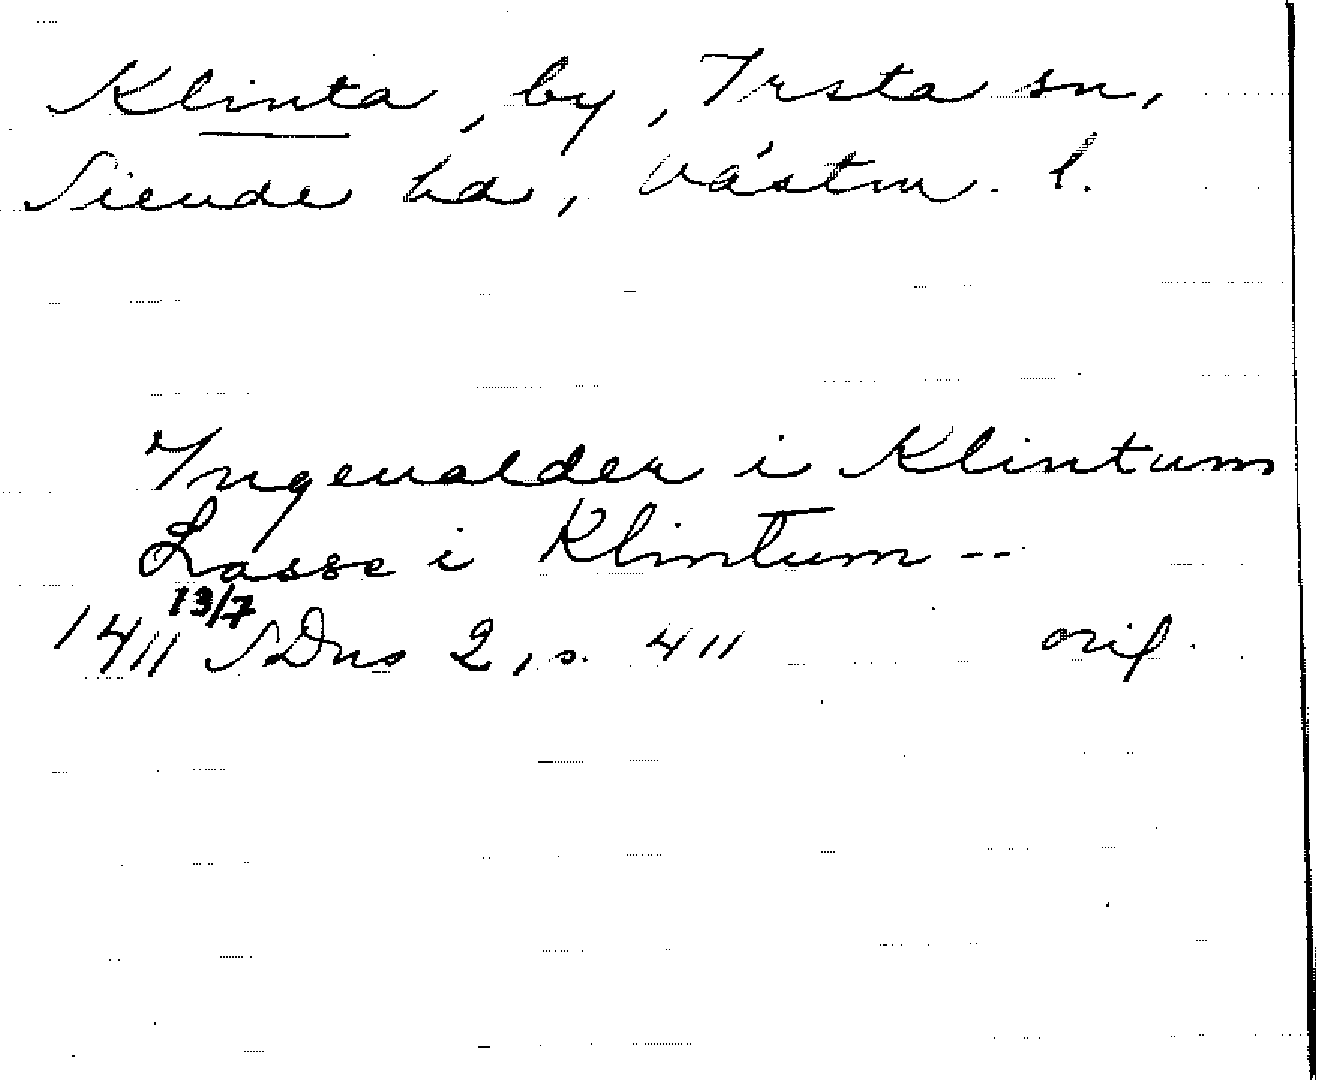 Klinta, by, Irsta sn,
Siende hd, Västm. l.
Ingeualder i Klintum
Lasse i Klintum --
1411 13/7 SDns 2, s. 411 orig.